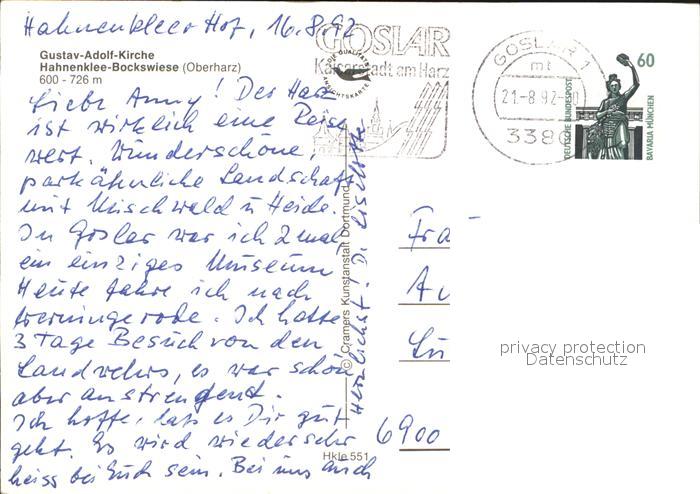 Hahnenklee Hof, 16.8.92
Gustav-Adolf-Kirche
Hahnenklee-Bockswiese (Oberharz)
600 - 726 m
Liebe Anny! Der Harz
ist wirklich eine Reise
wert. Wunderschöne,
parkähnliche Landschaft
mit Mischwald u Heide.
In Goslar war ich 2 mal,
ein einziges Museum
Heute fahre ich nach
Werningerode. Ich hatte
3 Tage Besuch von den
Landvehrs, es war schön
aber anstrengend.
Ich hoffe, dass es Dir gut
geht. Es wird wieder sehr
heiss bei Euch sein. Bei uns auch
Herzlichst! D. Liselotte
© Cramers Kunstanstalt Dortmund
Hkle 551
DIE QUALITÄTS
ANSICHTSKARTE
GOSLAR
Kaiserstadt am Harz
GOSLAR 1
mt
21-8.92-
3380
60
DEUTSCHE BUNDESPOST
BAVARIA MÜNCHEN
Fra
6900
privacy protection
Datenschutz